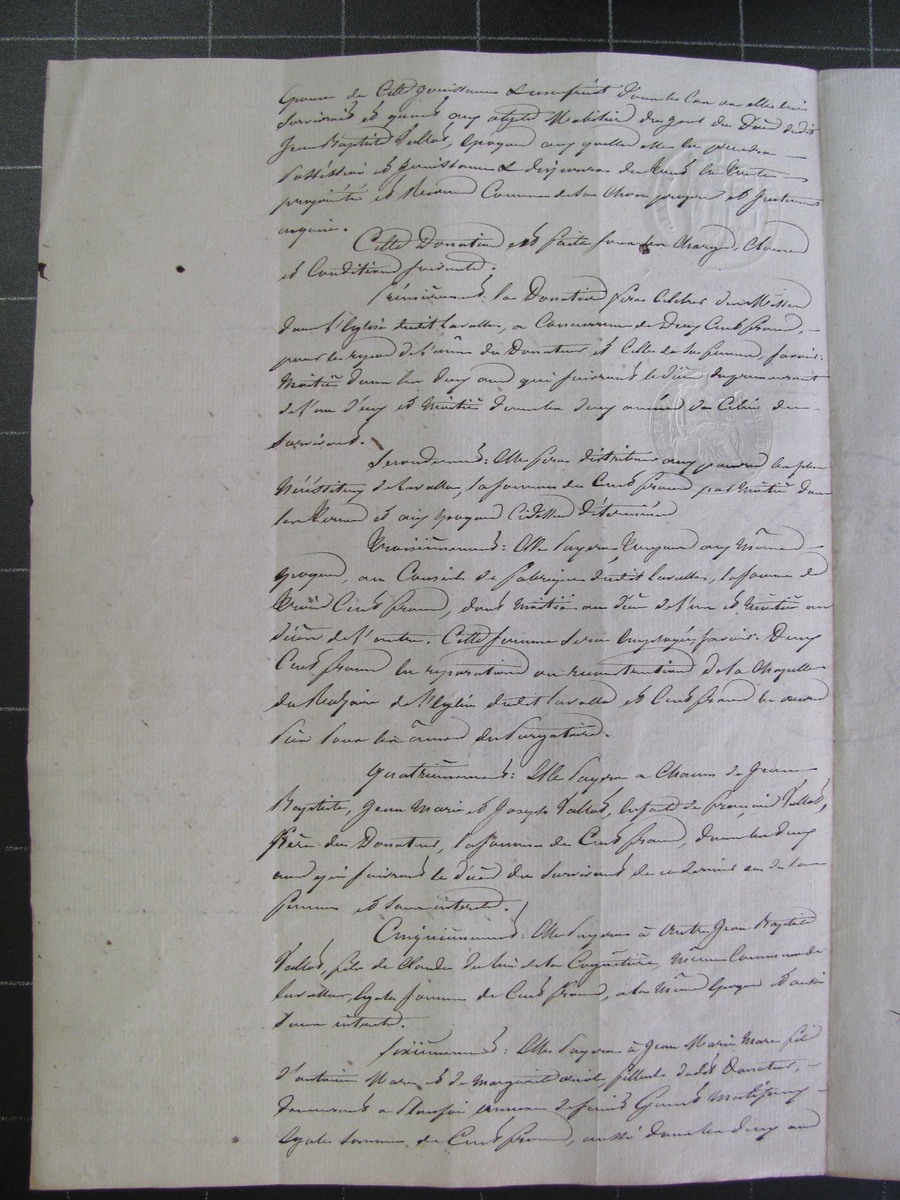 époux de cette jouissance & usufruit dans le cas où elle lui
survivrait et quant aux objets Mobiliers du jour du Décès dudit
Jean Baptiste Vallas, époque aux quelles elle en prendra
possession et jouissance & disposera du tout en toute
propriété et comme de sa chose propre et justement
acquise.
Cette Donation est faite sous les Charges, Clauses
et Conditions suivantes.
Premièrement: la Donataire fera célébrer des Messes
dans l'Eglise dudit Lavalla, a Concurrence de Deux Cents francs,
pour le repos de l'âme du Donateur et Celle de sa femme, savoir:
Moitié dans les deux ans qui suivront le décès du premourant
de l'un d'eux et Moitié dans les deux années du Décès du
survivant.
Secondement: Elle fera distribuer aux pauvres les plus
Nécessiteux de Lavalla, la somme de Cent francs par Moitié dans
les termes et aux époques Cidessus déterminés
Troisièmement: Elle payera, toujours aux Mêmes
époques, au Conseil de fabrique dudit Lavalla, la somme de
Trois Cents francs, dont Moitié au décès de l'un et Moitié au
décès de l'autre. Cette somme sera employée, savoir: Deux
Cents francs en réparations ou reconstruction de la Chapelle
du Rosaire de l'Eglise dudit Lavalla et Cent francs en œuvres
Pies Pour les âmes du Purgatoire.
Quatrièmement: Elle payera a Chacun de Jean
Baptiste, Jean Marie et Joseph Vallas, enfants de François Vallas,
frère du Donateur, la somme de Cent francs, dans les deux
ans qui suivront le décès du survivant de ce dernier ou de sa
femme et sans intérêts.
Cinquièmement: Elle payera à autre Jean Baptiste
Vallas, fils de Claude du lieu de la même Commune de
Lavalla, égale somme de Cent francs, a la Même époque et aussi
sans intérêts.
Sixièmement: Elle payera à Jean Marie fils
d'antoine et de Marguerite filleul dudit Donateur,
demeurant a commune de Saint Genest Malifaux
égale somme de Cent francs, aussi dans les deux ans